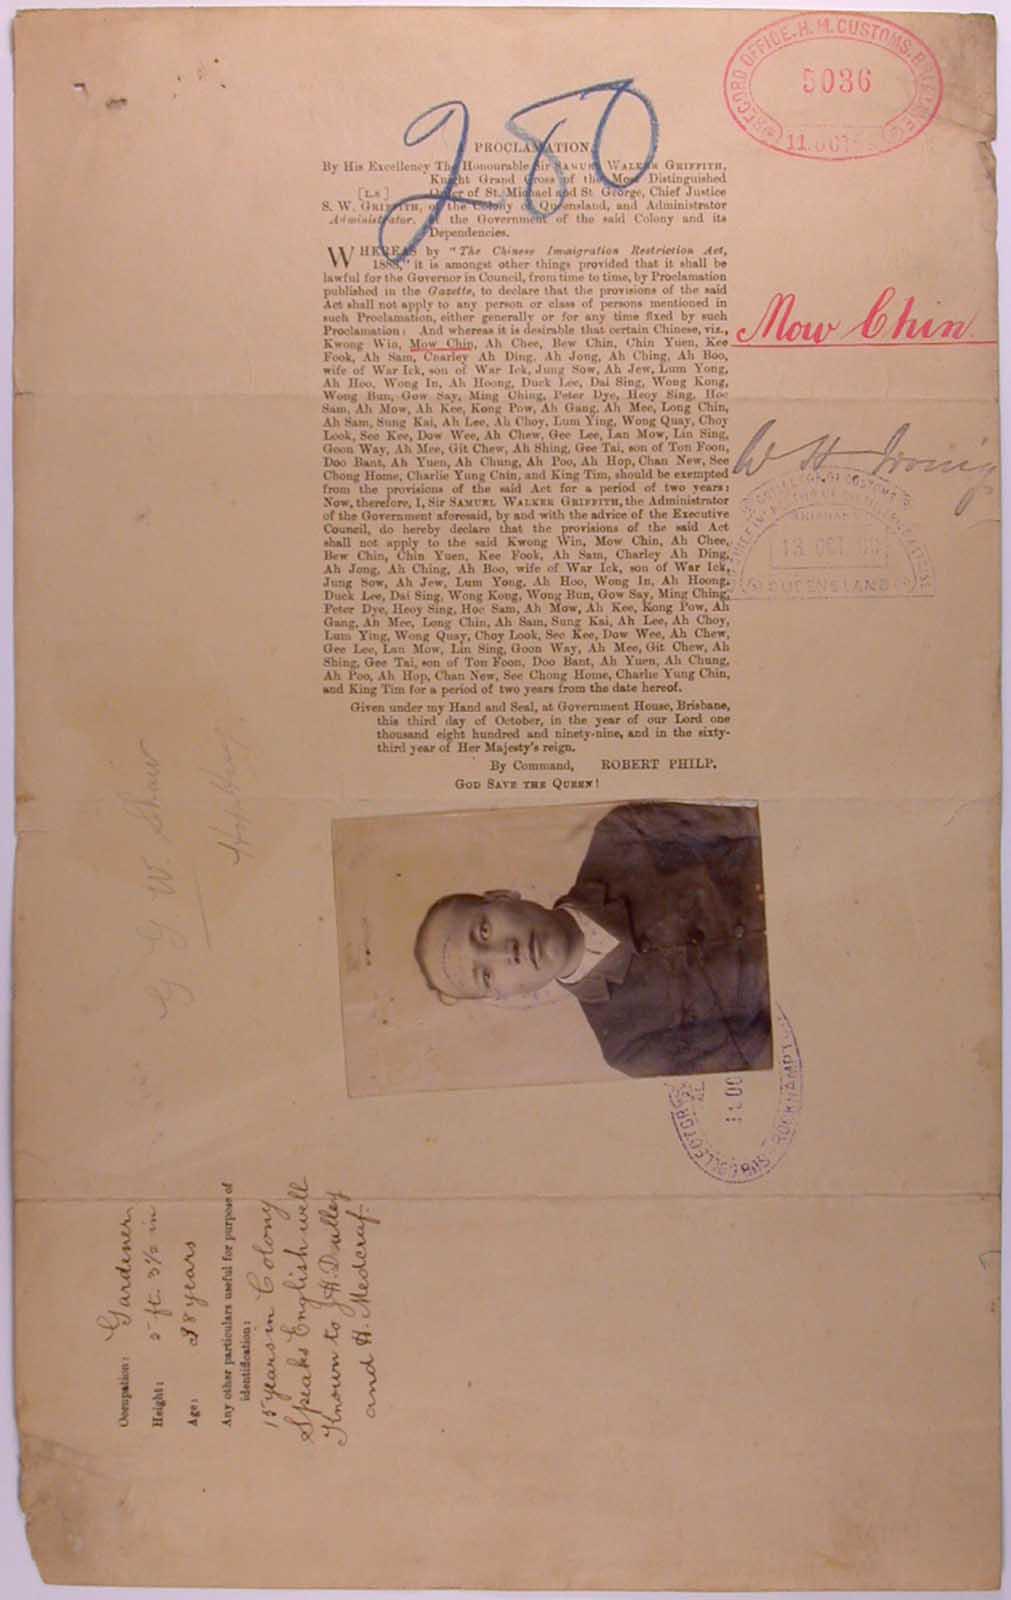 280
RECORD OFFICE. H. M. CUSTOMS.
5036
11. OCT
PROCLAMATION.
By His Excellency The Honourable Sir SAMUEL WALKER GRIFFITH,
Knight Grand Cross of the Most Distinguished
[L.S] Order of St. Michael and St. George, Chief Justice
S. W. GRIFFITH, of the Colony of Queensland, and Administrator
Administrator. of the Government of the said Colony and its
Dependencies.
WHEREAS by "The Chinese Immigration Restriction Act,
1888," it is amongst other things provided that it shall be
lawful for the Governor in Council, from time to time, by Proclamation
published in the Gazette, to declare that the provisions of the said
Act shall not apply to any person or class of persons mentioned in
such Proclamation, either generally or for any time fixed by such
Proclamation: And whereas it is desirable that certain Chinese, viz.,
Kwong Win, Mow Chin, Ah Chee, Bew Chin, Chin Yuen, Kee
Fook, Ah Sam, Charley Ah Ding, Ah Jong, Ah Ching, Ah Boo,
wife of War Ick, son of War Ick, Jung Sow, Ah Jew, Lum Yong,
Ah Hoo, Wong In, Ah Hoong, Duck Lee, Dai Sing, Wong Kong,
Wong Bun, Gow Say, Ming Ching, Peter Dye, Heoy Sing, Hoc
Sam, Ah Mow, Ah Kee, Kong Pow, Ah Gang, Ah Mee, Long Chin,
Ah Sam, Sung Kai, Ah Lee, Ah Choy, Lum Ying, Wong Quay, Choy
Look, See Kee, Dow Wee, Ah Chew, Gee Lee, Lan Mow, Lin Sing,
Goon Way, Ah Mee, Git Chew, Ah Shing, Gee Tai, son of Ton Foon,
Doo Bant, Ah Yuen, Ah Chung, Ah Poo, Ah Hop, Chan New, See
Chong Home, Charlie Yung Chin, and King Tim, should be exempted
from the provisions of the said Act for a period of two years:
Now, therefore, I, Sir SAMUEL WALKER GRIFFITH, the Administrator
of the Government aforesaid, by and with the advice of the Executive
Council, do hereby declare that the provisions of the said Act
shall not apply to the said Kwong Win, Mow Chin, Ah Chee,
Bew Chin, Chin Yuen, Kee Fook, Ah Sam, Charley Ah Ding,
Ah Jong, Ah Ching, Ah Boo, wife of War Ick, son of War Ick,
Jung Sow, Ah Jew, Lum Yong, Ah Hoo, Wong In, Ah Hoong,
Duck Lee, Dai Sing, Wong Kong, Wong Bun, Gow Say, Ming Ching,
Peter Dye, Heoy Sing, Hoc Sam, Ah Mow, Ah Kee, Kong Pow, Ah
Gang, Ah Mee, Long Chin, Ah Sam, Sung Kai, Ah Lee, Ah Choy,
Lum Ying, Wong Quay, Choy Look, See Kee, Dow Wee, Ah Chew,
Gee Lee, Lan Mow, Lin Sing, Goon Way, Ah Mee, Git Chew, Ah
Shing, Gee Tai, son of Ton Foon, Doo Bant, Ah Yuen, Ah Chung,
Ah Poo, Ah Hop, Chan New, See Chong Home, Charlie Yung Chin,
and King Tim for a period of two years from the date hereof.
Given under my Hand and Seal, at Government House, Brisbane,
this third day of October, in the year of our Lord one
thousand eight hundred and ninety-nine, and in the sixty-
third year of Her Majesty's reign.
By Command, ROBERT PHILP.
GOD SAVE THE QUEEN!
Mow Chin
W H Irving
13 OCT
QUEENSLAND
G. W. Shaw
Occupation: Gardener
Height: 5 ft. 3½ in
Age: 28 years
Any other particulars useful for purpose of
identification:
15 years in Colony
Speaks English well
Known to J. H. Dulley
and H. Medcraf